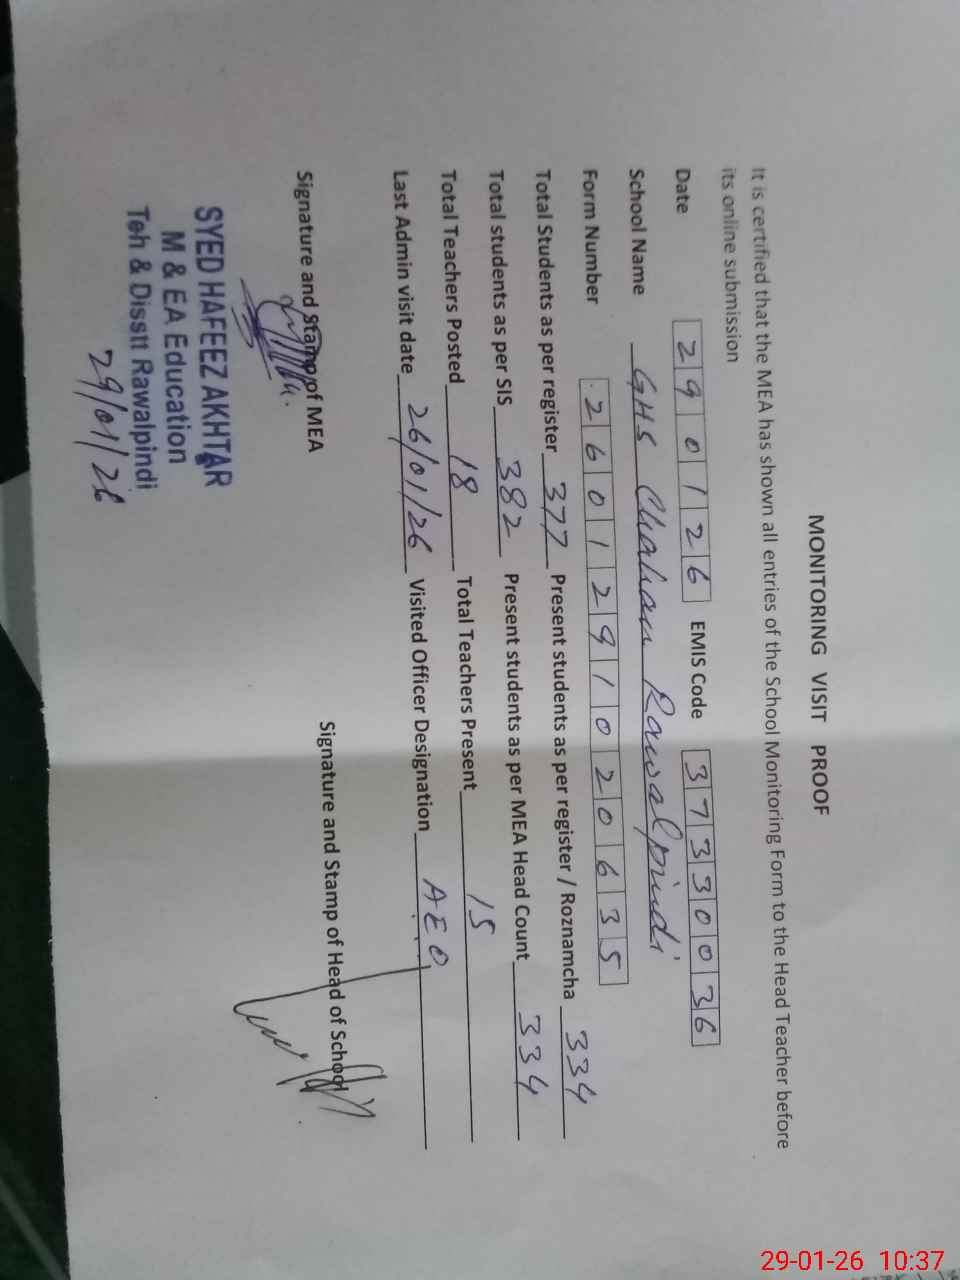 MONITORING VISIT PROOF
It is certified that the MEA has shown all entries of the School Monitoring Form to the Head Teacher before
its online submission
Date 290126 EMIS Code 37330036
School Name GHS Chahan Rawalpindi
Form Number 2601291020635
Total Students as per register 377 Present students as per register / Roznamcha 334
Total students as per SIS 382 Present students as per MEA Head Count 334
Total Teachers Posted 18 Total Teachers Present 15
Last Admin visit date 26/01/26 Visited Officer Designation AEO
Signature and Stamp of MEA Signature and Stamp of Head of School
SYED HAFEEZ AKHTAR
M & EA Education
Teh & Disstt Rawalpindi
29/01/26
29-01-26 10:37